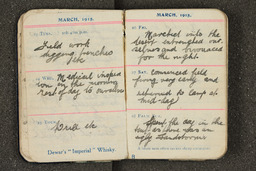 MARCH, 1915.
Field work
digging trenches
etc
Medical inspect
ion in the morning
rest of day to ourselves
Drill etc
Dewar's "Imperial" Whisky
MARCH, 1915.
Marched into the
desert entrenched our
selves and bivouaced
for the night
Commenced field
firing very early and
returned to camp at
mid-day
Spent the day in the
tent as there was an
ugly sandstorm